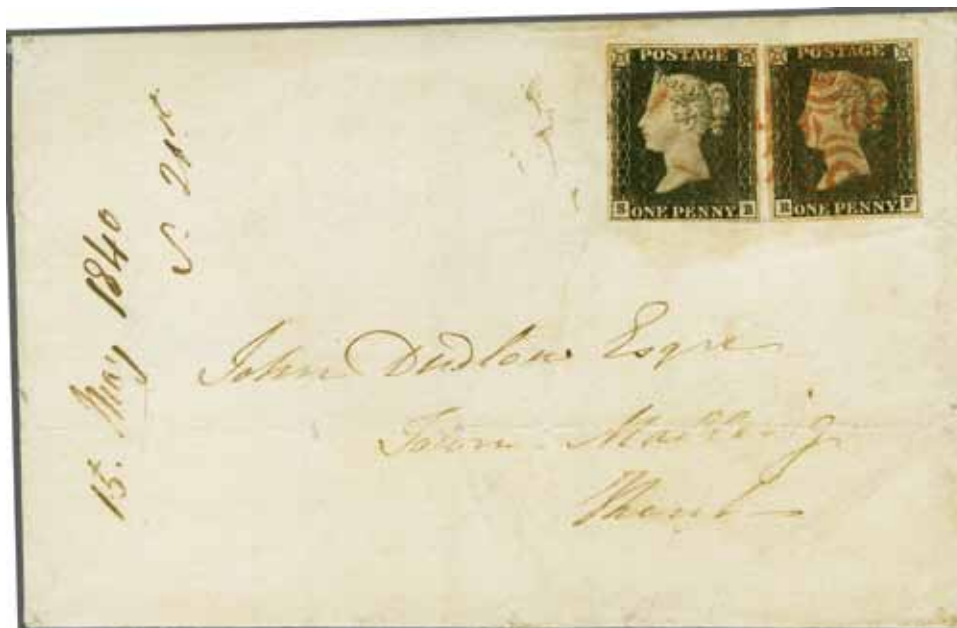 POSTAGE
ONE PENNY B
POSTAGE
ONE PENNY F
15. May 1840
John Dudlow Esqre
Town Malling
Kent